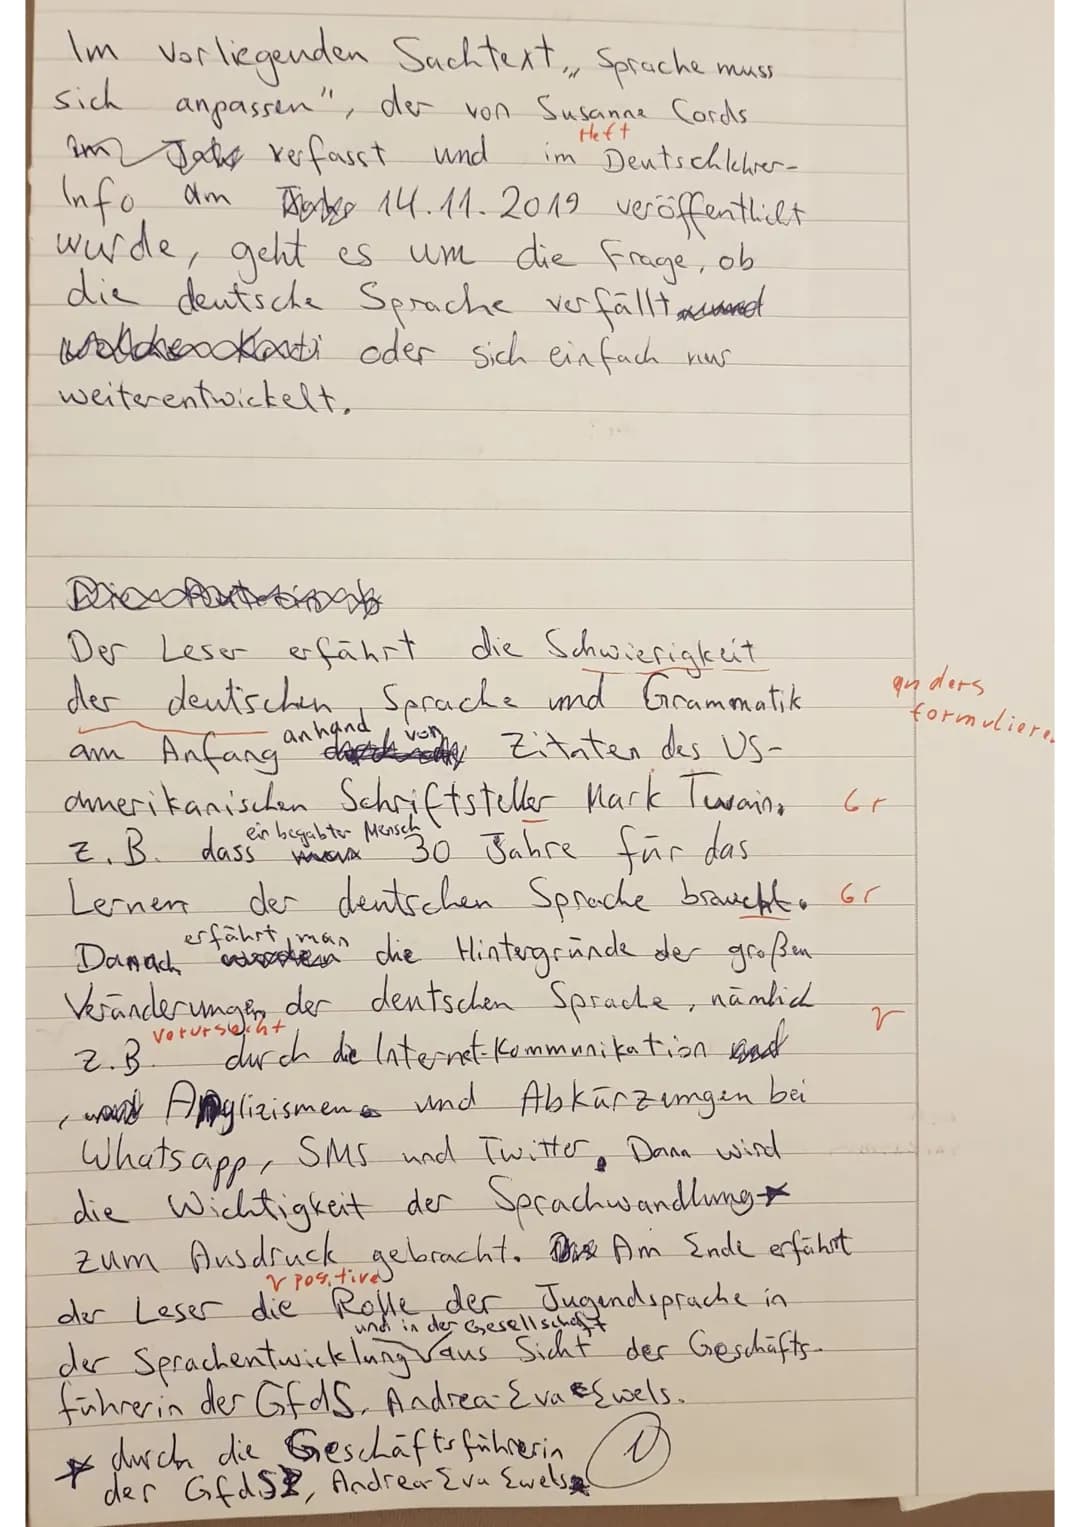 Im vorliegenden Sachtext „Sprache muss
sich anpassen", der von Susanne Cords
verfasst und im Heft Deutschlehrer-
Info am 14.11.2019 veröffentlicht
wurde, geht es um die Frage, ob
die deutsche Sprache verfällt
oder sich einfach nur
weiterentwickelt.
Der Leser erfährt die Schwierigkeit
der deutschen Sprache und Grammatik
anders
formulieren
am Anfang anhand von Zitaten des US-
amerikanischen Schriftsteller Mark Twain, Gr
z.B. dass ein begabter Mensch 30 Jahre für das
Lernen der deutschen Sprache braucht. Gr
Danach erfährt man die Hintergründe der großen
Veränderungen der deutschen Sprache, nämlich
z.B. verursacht durch die Internet-Kommunikation
, Anglizismen und Abkürzungen bei
Whatsapp, SMS und Twitter. Dann wird
die Wichtigkeit der Sprachwandlung *
zum Ausdruck gebracht. Am Ende erfährt
der Leser die positive Rolle der Jugendsprache in
der Sprachentwicklung und in der Gesellschaft aus Sicht der Geschäfts-
führerin der GfdS, Andrea-Eva Ewels.
* durch die Geschäftsführerin
der GfdS, Andrea-Eva Ewels